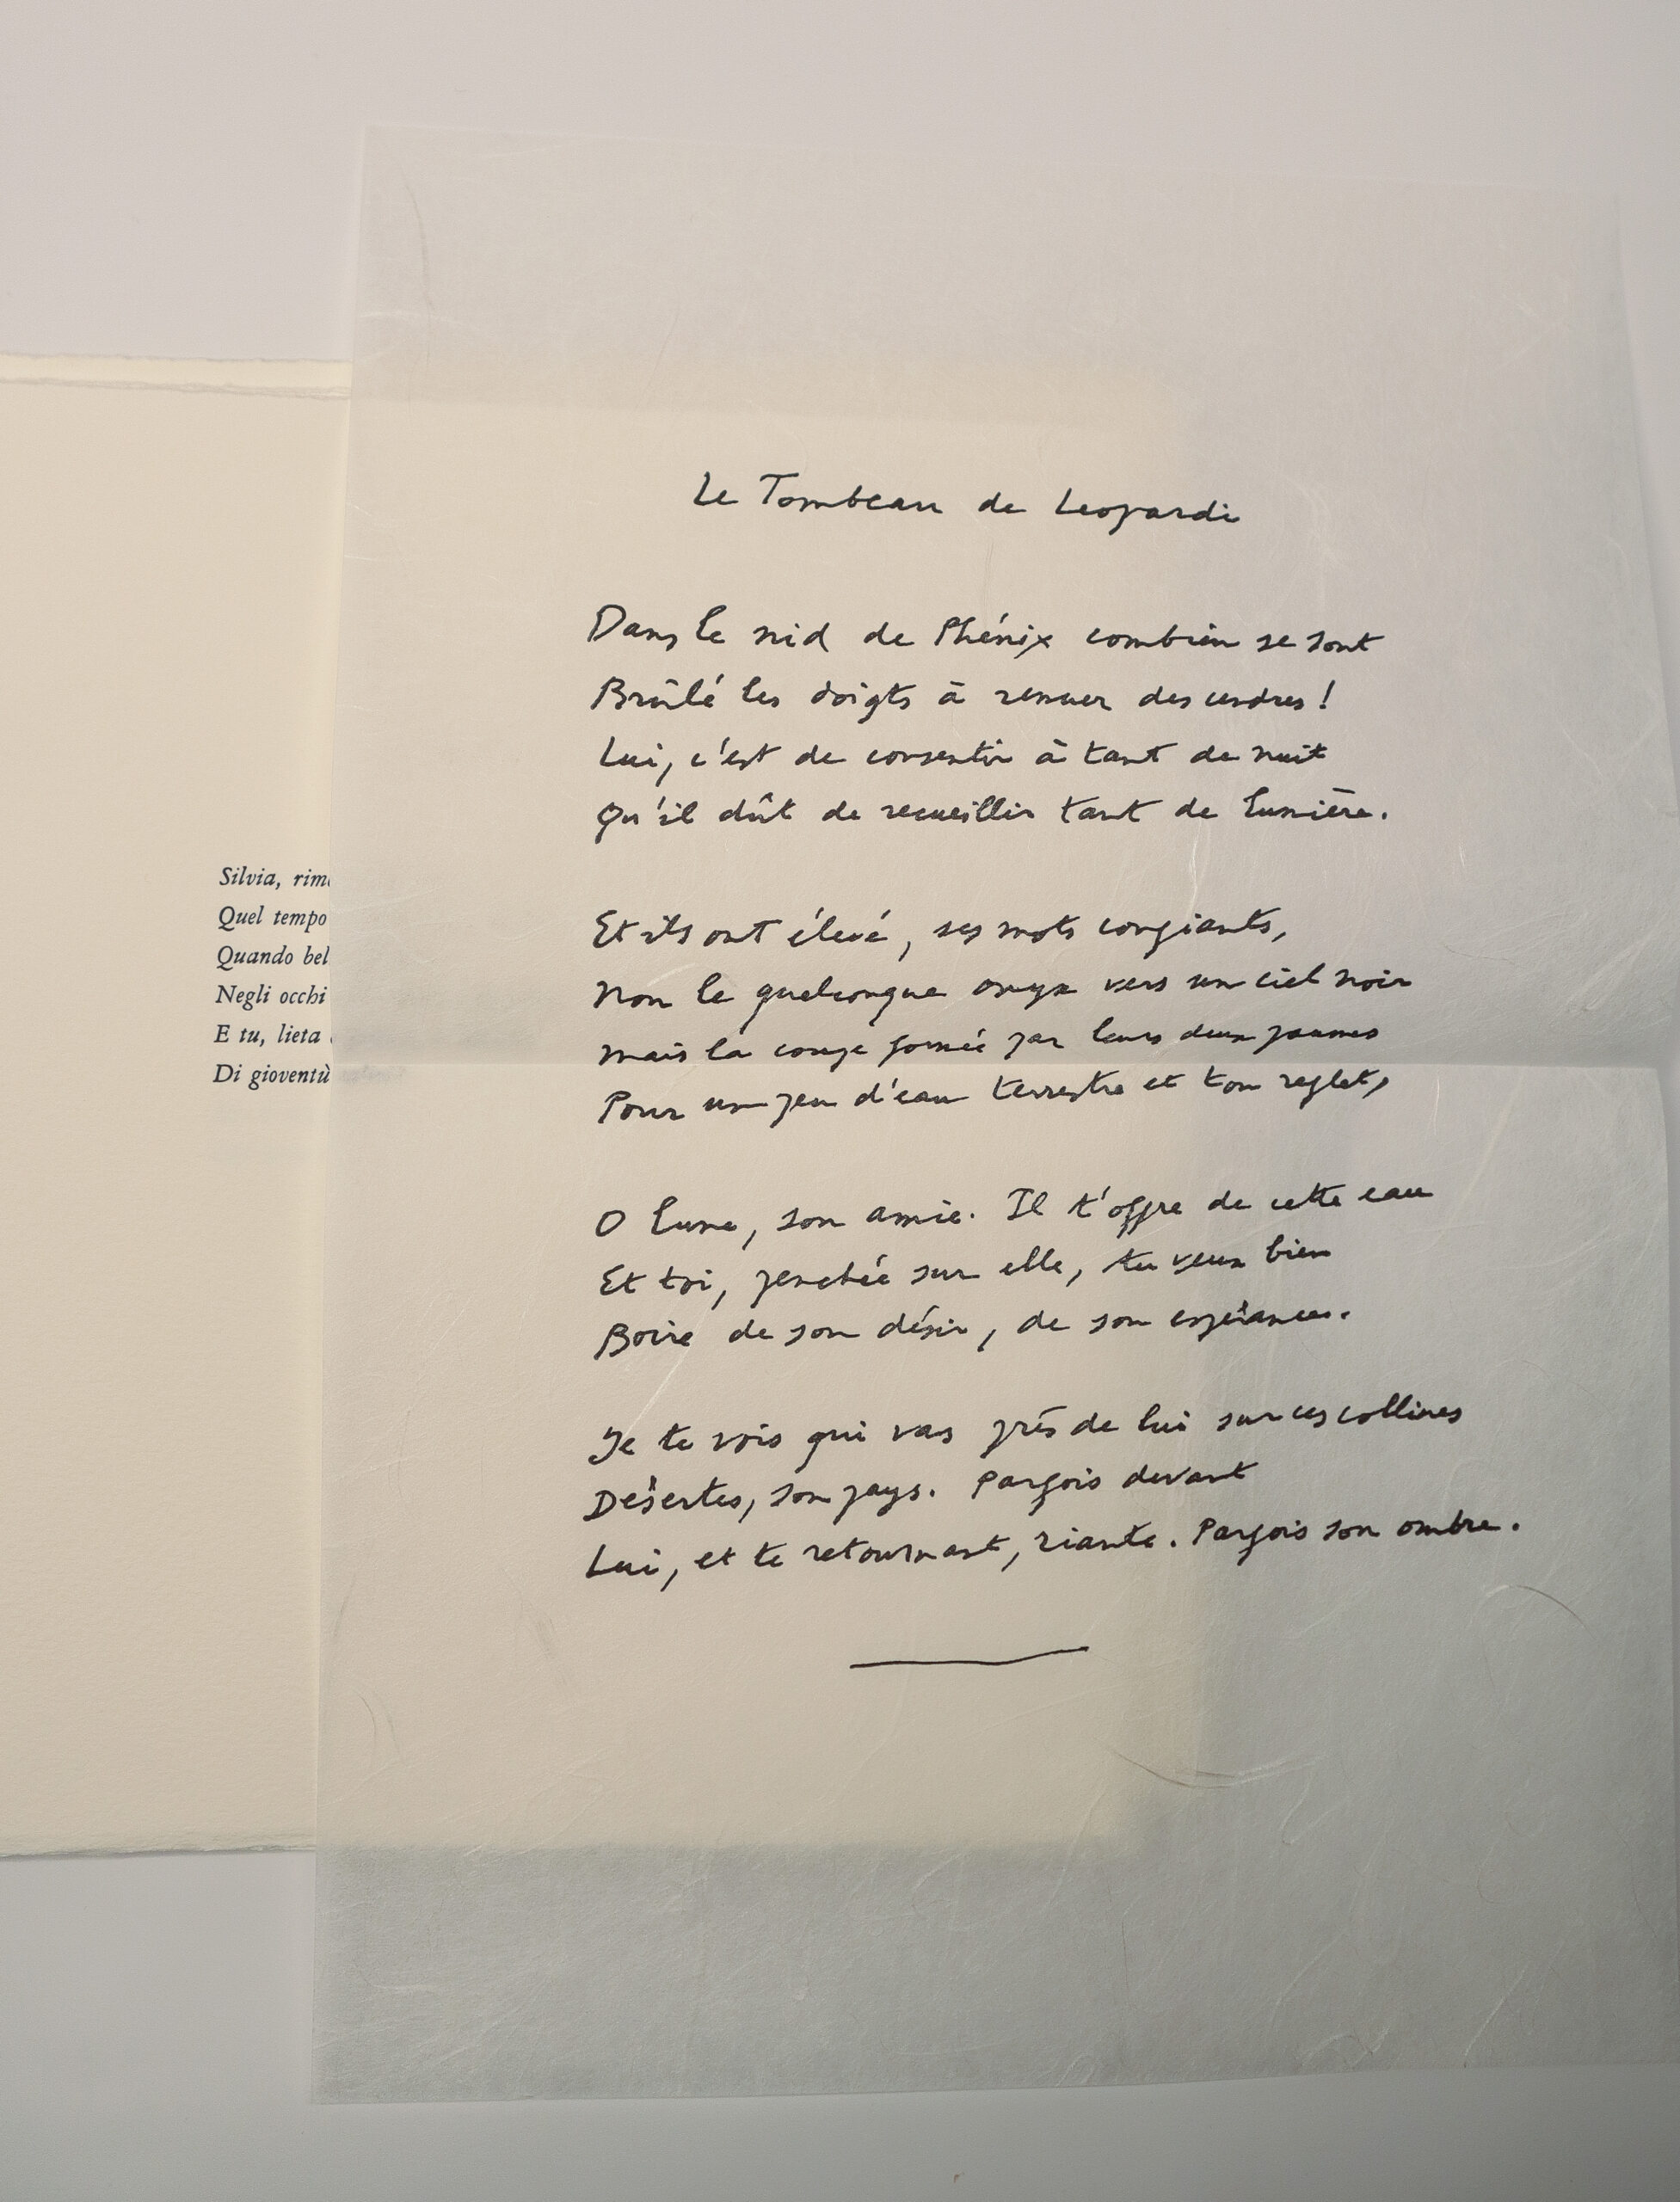 Le Tombeau de Leopardi
Dans le nid de Phénix combien se sont
Brûlé les doigts à remuer des cendres !
Lui, c'est de consentir à tant de nuit
Qu'il dût de recueillir tant de lumière.
Et ils ont élevé, ses mots confiants,
Non le quelconque onyx vers un ciel noir
Mais la coupe formée par leurs deux paumes
Pour un peu d'eau terrestre et ton reflet,
O lune, son amie. Il t'offre de cette eau
Et toi, penchée sur elle, tu veux bien
Boire de son désir, de son espérance.
Je te vois qui vas près de lui sur ces collines
Désertes, son pays. Parfois devant
Lui, et te retournant, riante. Parfois son ombre.
Silvia, rim
Quel tempo
Quando bel
Negli occhi
E tu, lieta
Di gioventù